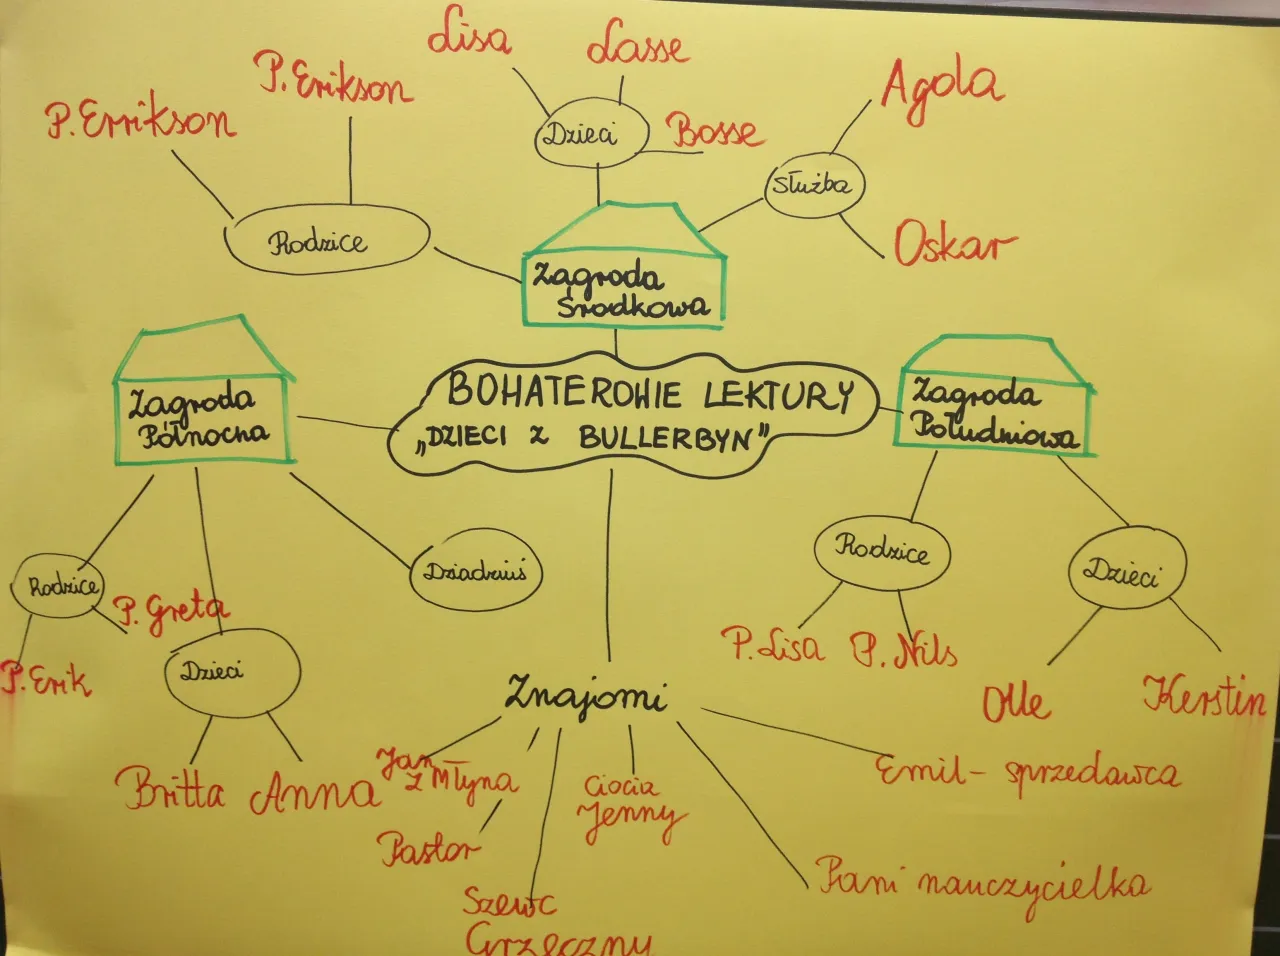 Lisa
Lasse
P. Erikson
P. Errikson
Agda
Dzieci
Bosse
Służba
Rodzice
Oskar
Zagroda
Środkowa
Zagroda
Północna
BOHATEROWIE LEKTURY
„DZIECI Z BULLERBYN”
Zagroda
Południowa
Rodzice
Dziadziuś
Rodzice
Dzieci
P. Greta
P. Erik
Dzieci
P. Lisa
P. Nils
Olle
Kerstin
Znajomi
Britta
Anna
Jan
z Młyna
Ciocia
Jenny
Emil - sprzedawca
Pastor
Pani nauczycielka
Szewc
Grzeczny